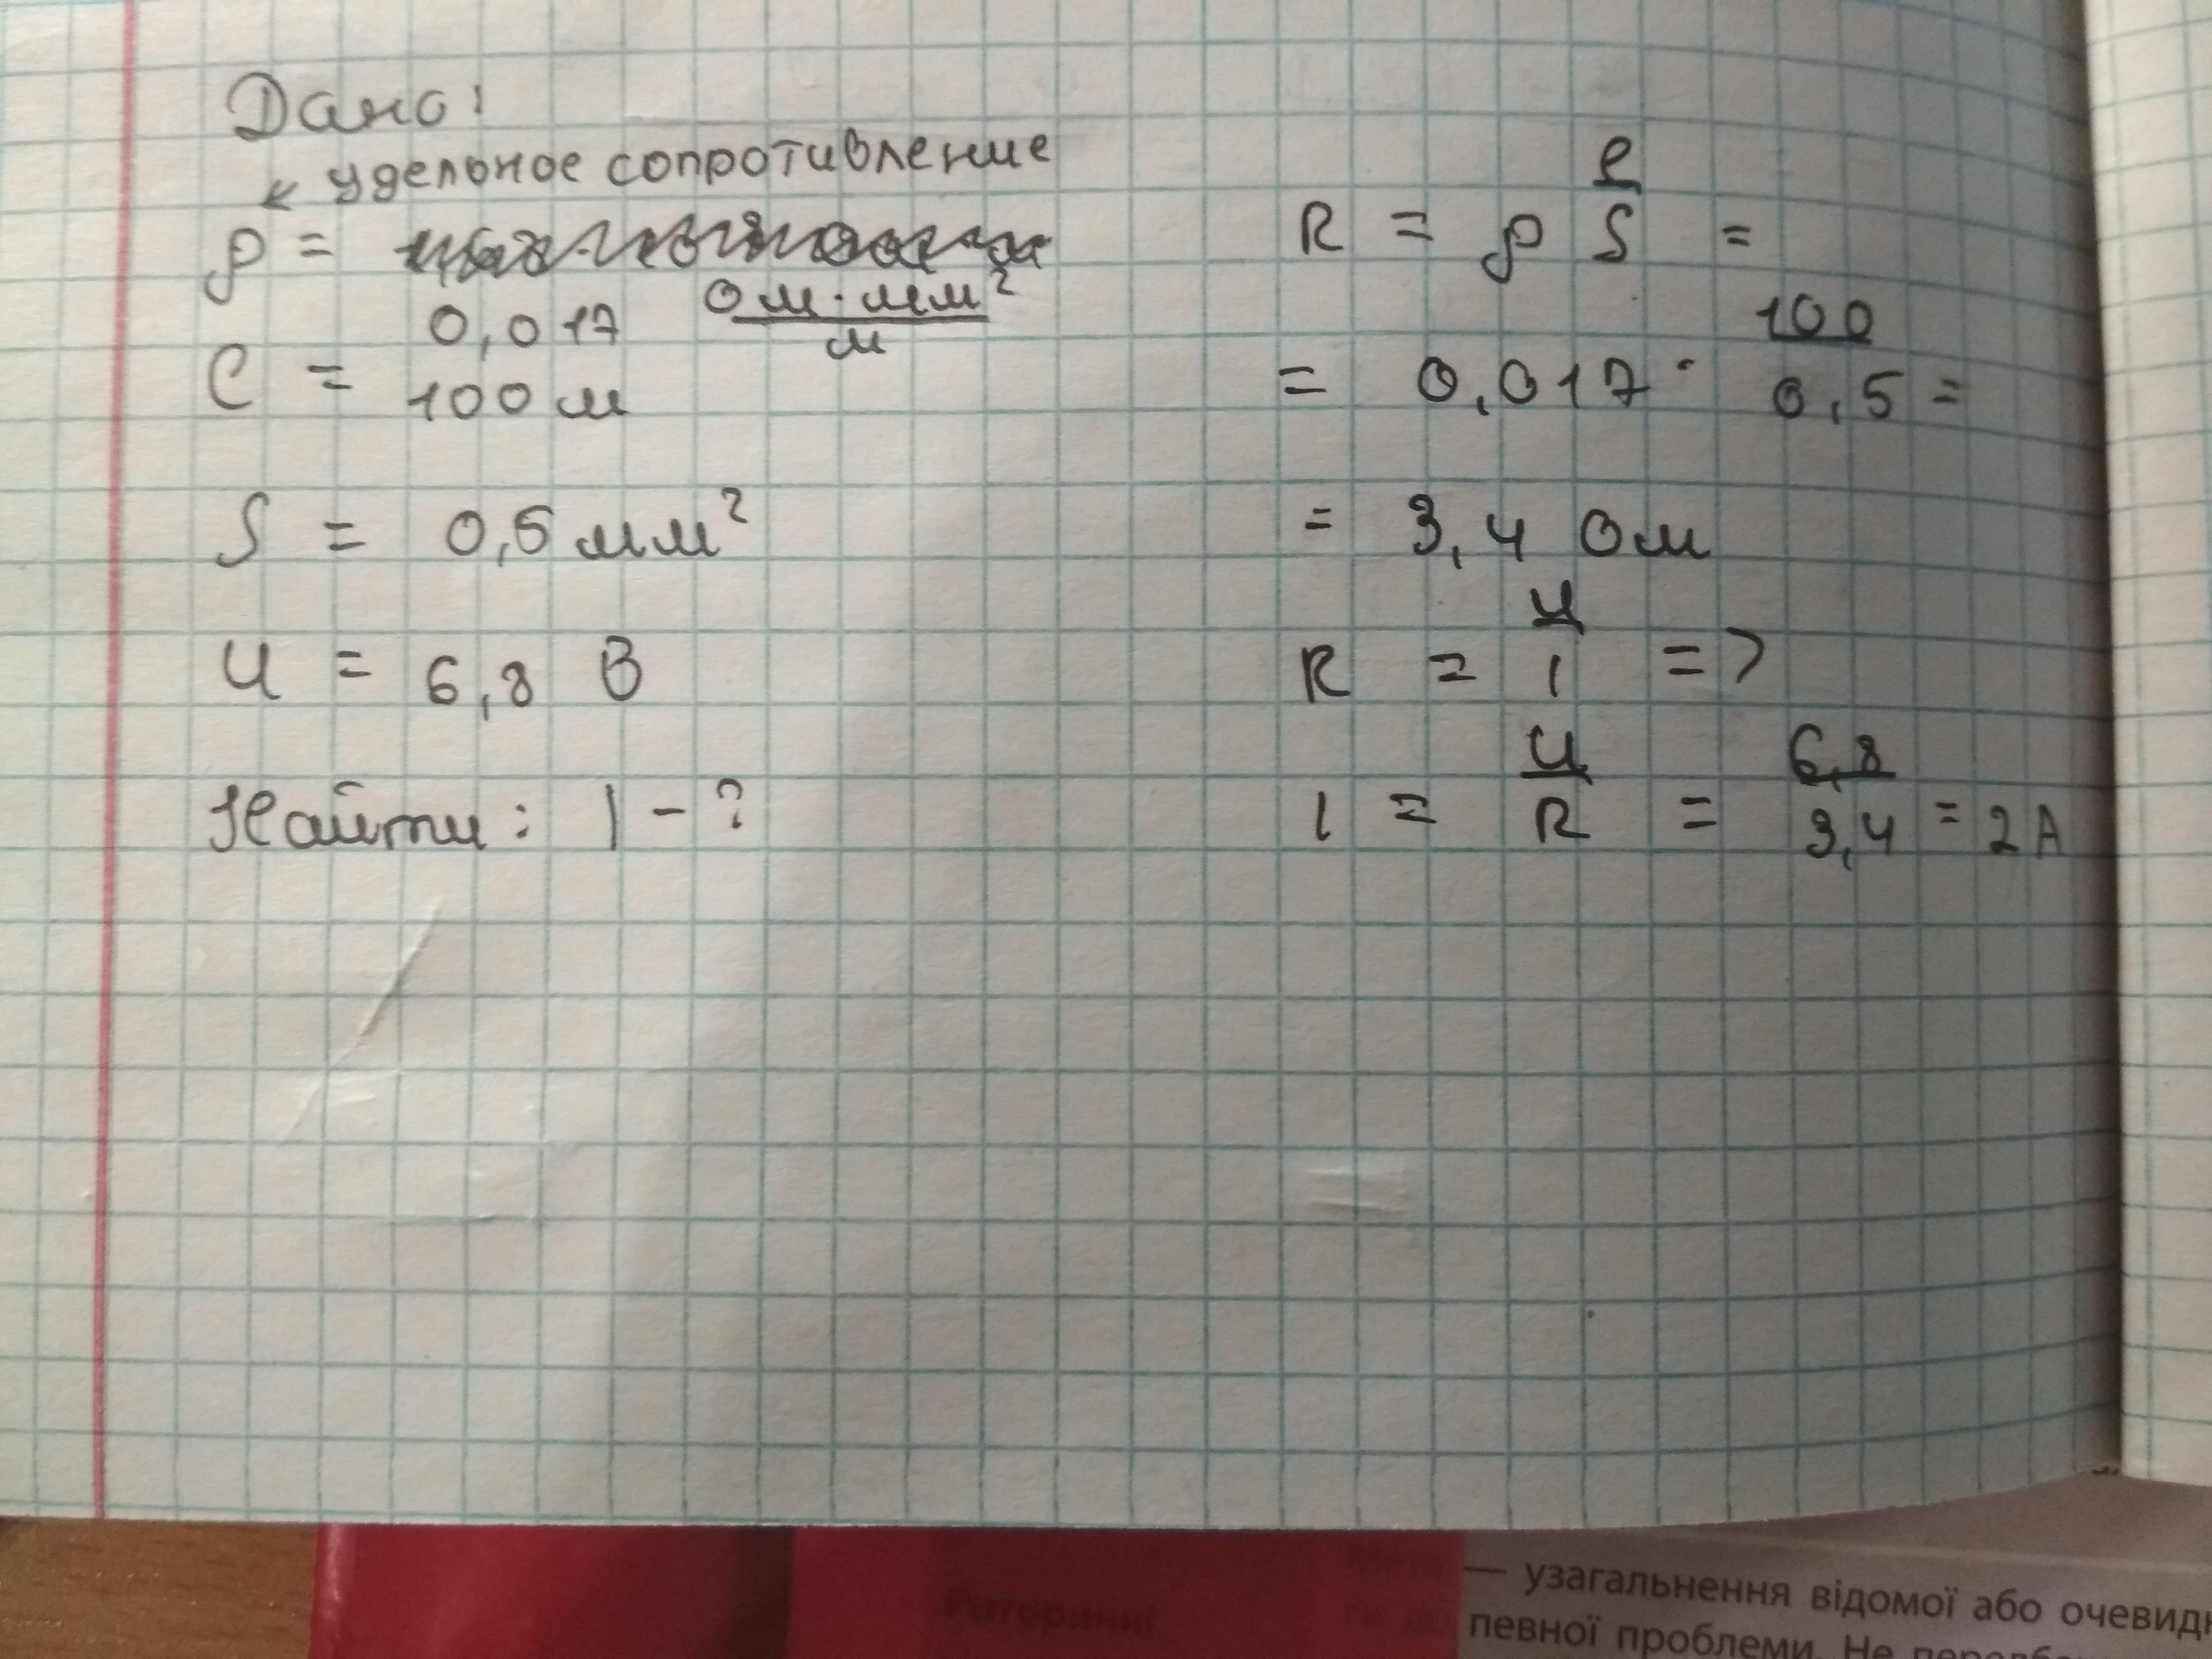 Дано:
удельное сопротивление
ρ =
0,017 Ом·мм²/м
l = 100 м
S = 0,5 мм²
U = 6,8 В
Найти: I - ?
R = ρ l/S =
= 0,017 · 100/0,5 =
= 3,4 Ом
R = U/I =>
I = U/R = 6,8/3,4 = 2А
— узагальнення відомої або
певної проблеми. Не